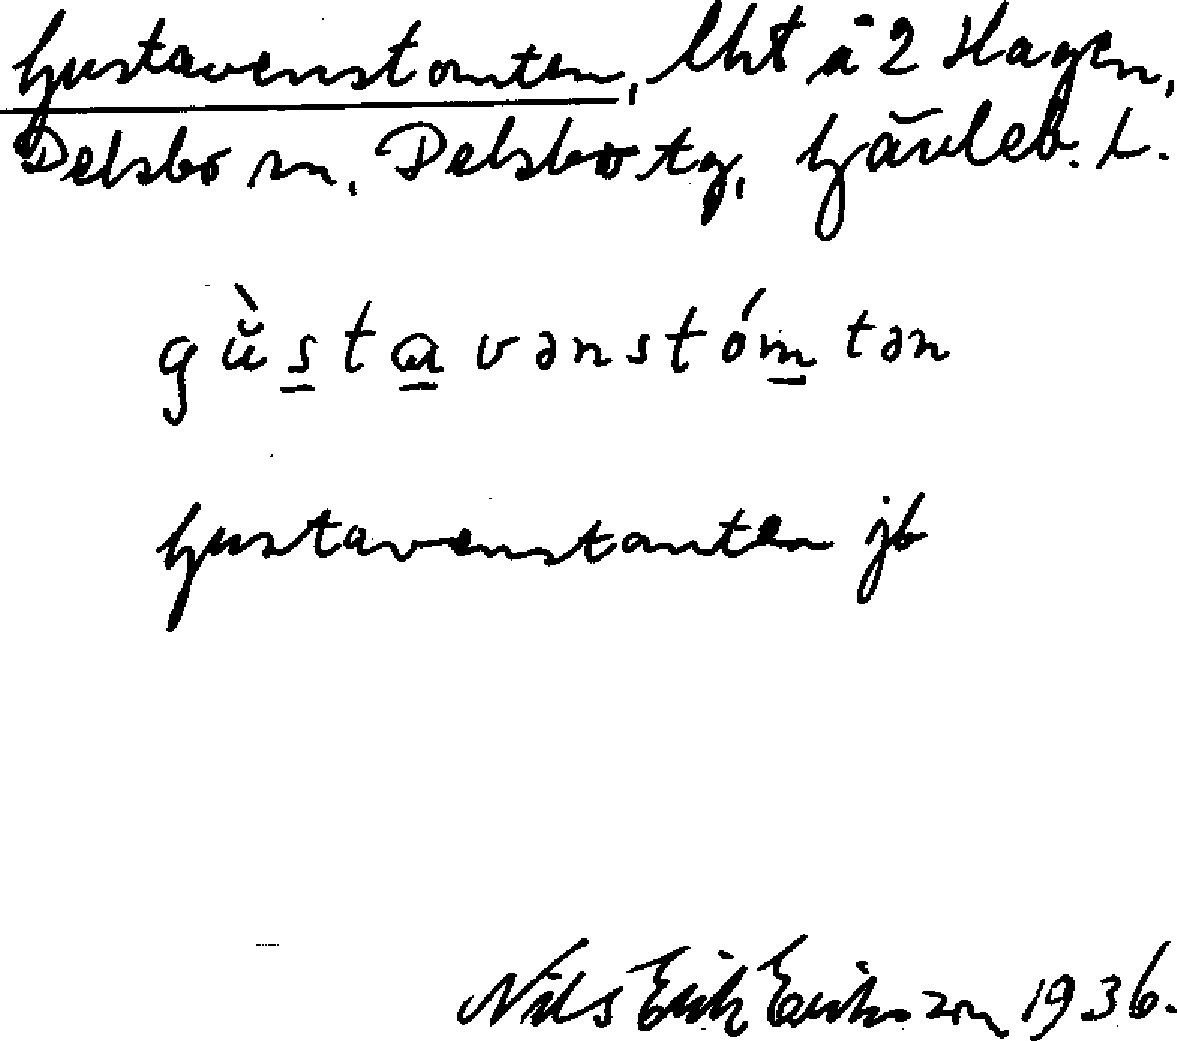 Gustavenstomten, lht å 2 Hagen,
Delsbo sn, Delsbo tg, Gävleb. L.
gù̆stavənstómtən
Gustavenstomten jb
Nils Erik Eriksson 1936.